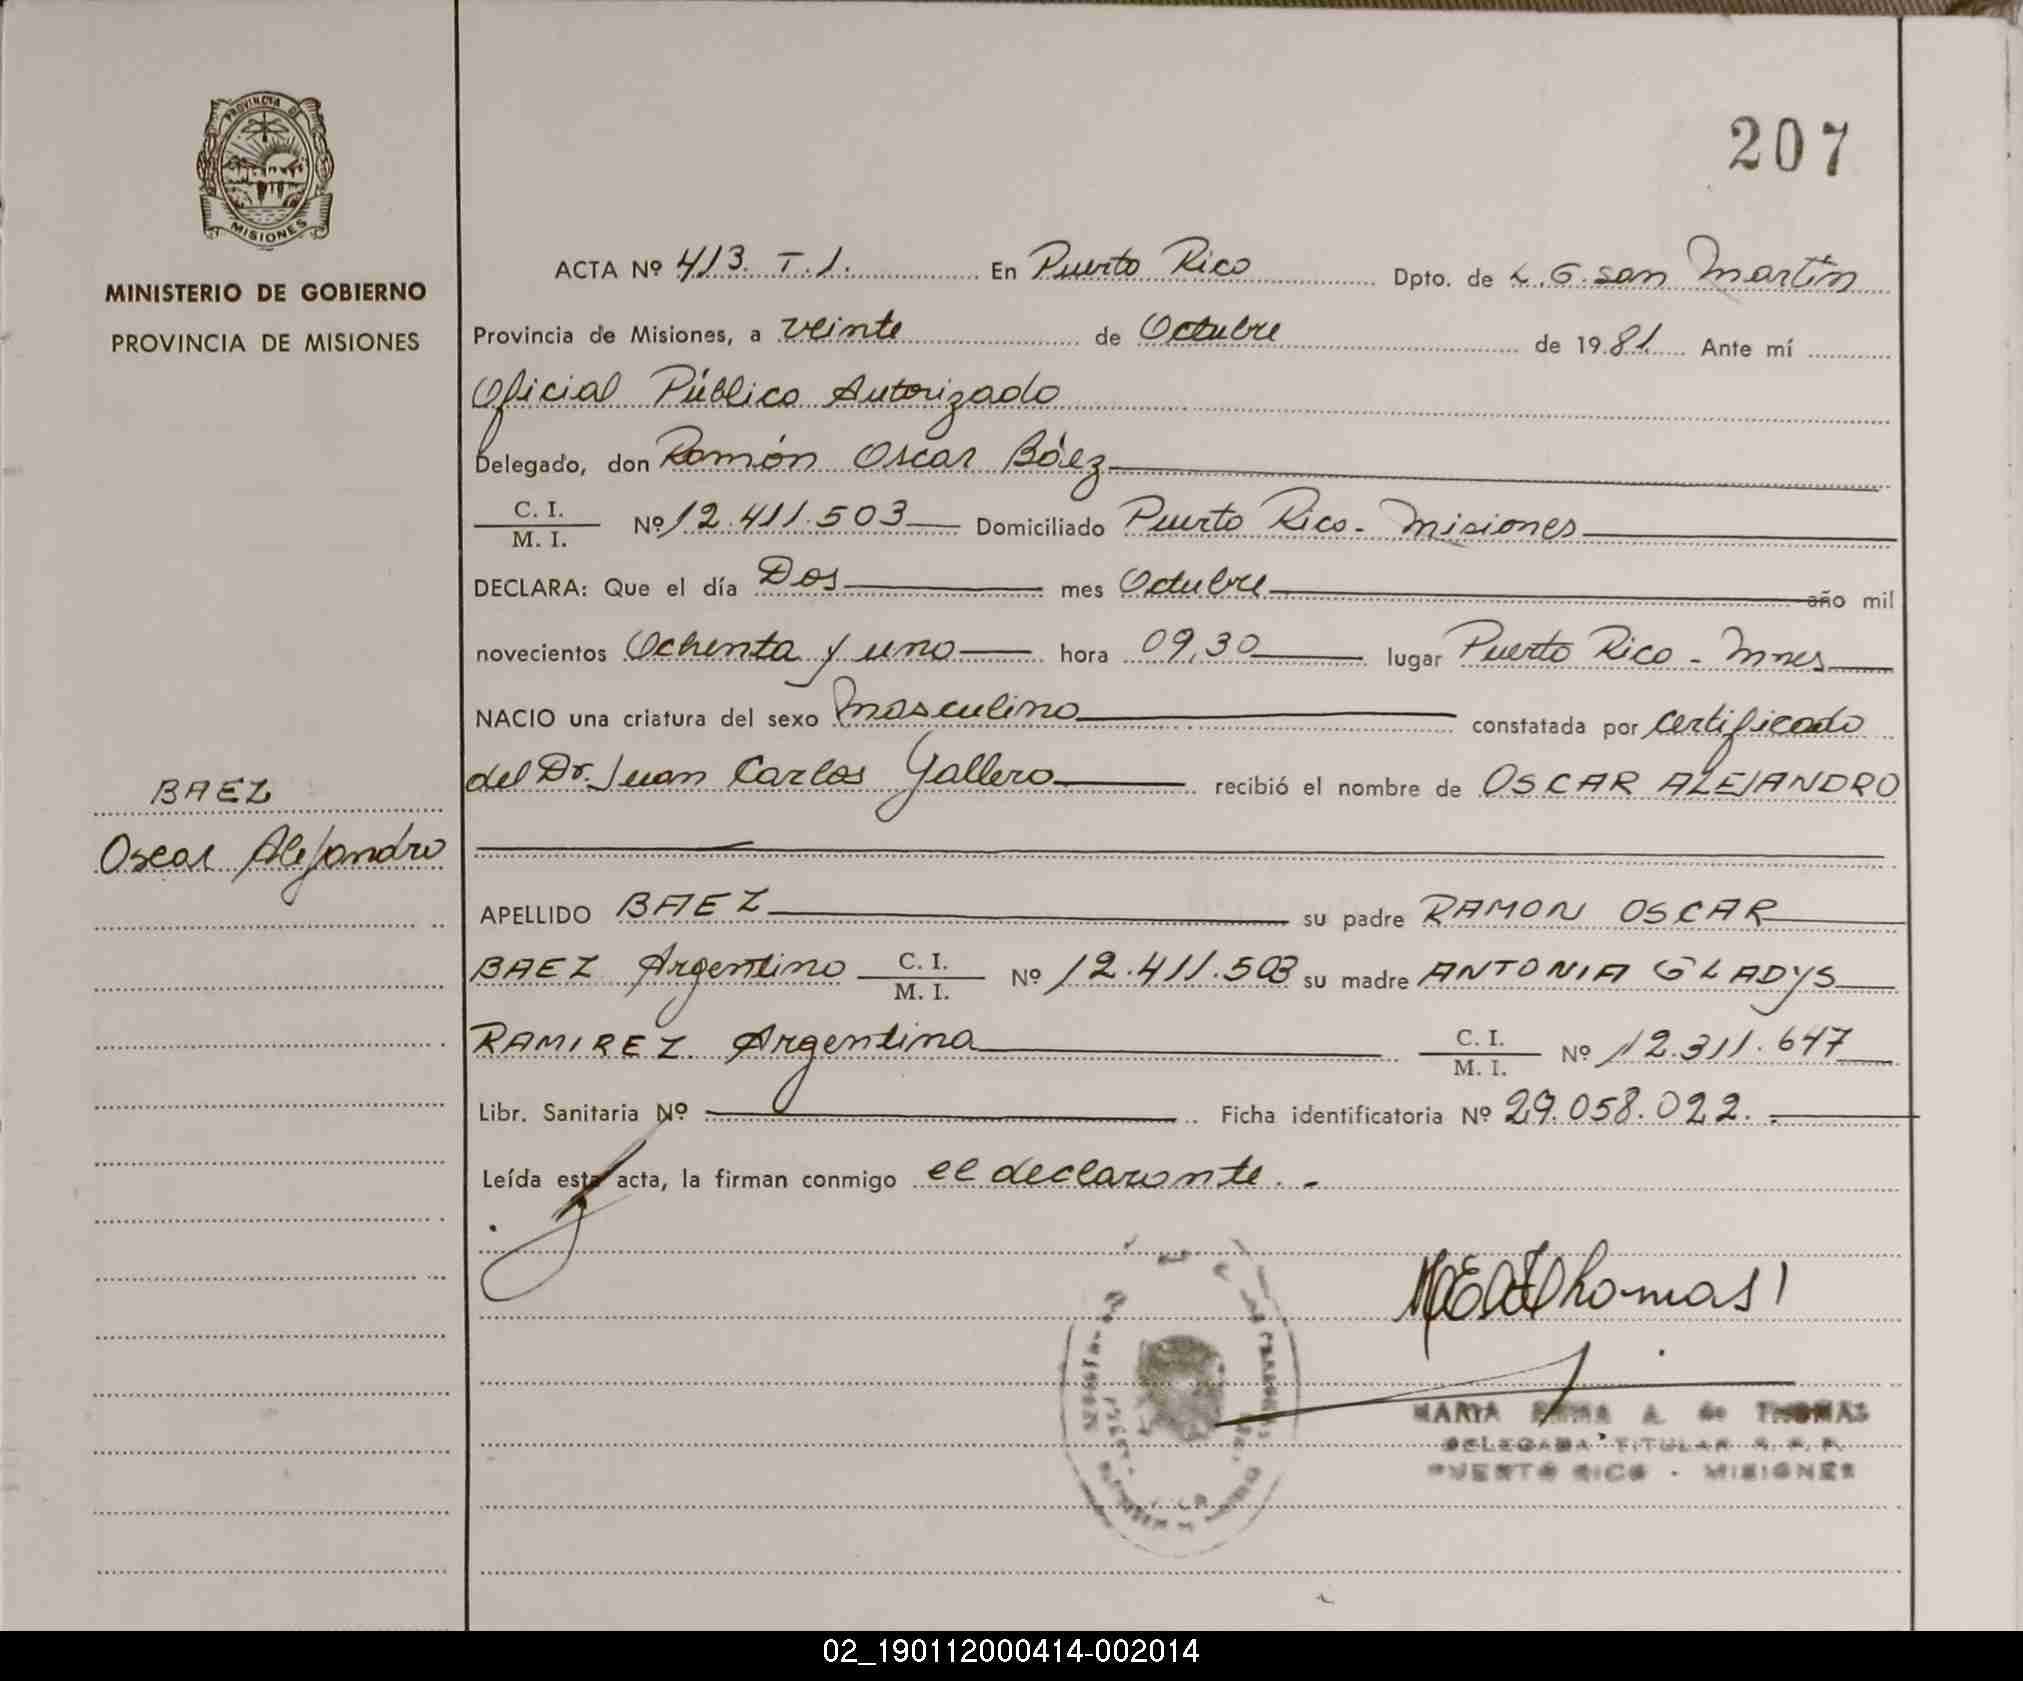 PROVINCIA DE
MISIONES
MINISTERIO DE GOBIERNO
PROVINCIA DE MISIONES
BAEZ
Oscar Alejandro
207
ACTA Nº 413. T. 1. En Puerto Rico Dpto. de L. G. san Martín
Provincia de Misiones, a veinte de Octubre de 1981 Ante mí
Oficial Público Autorizado
Delegado, don Ramón Oscar Báez
C. I.
M. I. Nº 12.411.503 Domiciliado Puerto Rico - Misiones
DECLARA: Que el día Dos mes Octubre año mil
novecientos Ochenta y uno hora 09,30 lugar Puerto Rico - Mnes
NACIO una criatura del sexo masculino constatada por certificado
del Dr. Juan Carlos Gallero recibió el nombre de OSCAR ALEJANDRO
APELLIDO BAEZ su padre RAMON OSCAR
BAEZ Argentino C. I. M. I. Nº 12.411.503 su madre ANTONIA GLADYS
RAMIREZ Argentina C. I. M. I. Nº 12.311.647
Libr. Sanitaria Nº Ficha identificatoria Nº 29.058.022.
Leída esta acta, la firman conmigo el declarante.
Thomas
MARIA EMMA A. de THOMAS
DELEGADA TITULAR R. P. P.
PUERTO RICO - MISIONES
02_190112000414-002014